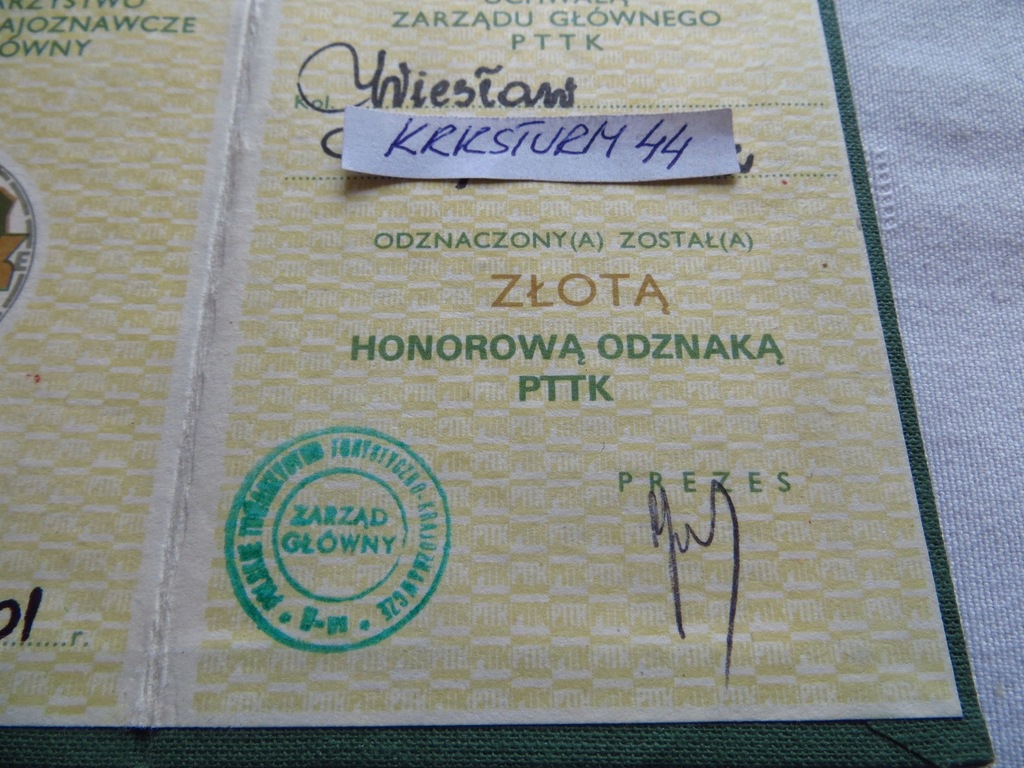 RZYSTWO
AJOZNAWCZE
ÓWNY
UCHWAŁĄ
ZARZĄDU GŁÓWNEGO
PTTK
Kol. Wiesław
KRKSTURM 44
ODZNACZONY(A) ZOSTAŁ(A)
ZŁOTĄ
HONOROWĄ ODZNAKĄ
PTTK
PREZES
POLSKIE TOWARZYSTWO TURYSTYCZNO-KRAJOZNAWCZE
ZARZĄD
GŁÓWNY
E
01 r.